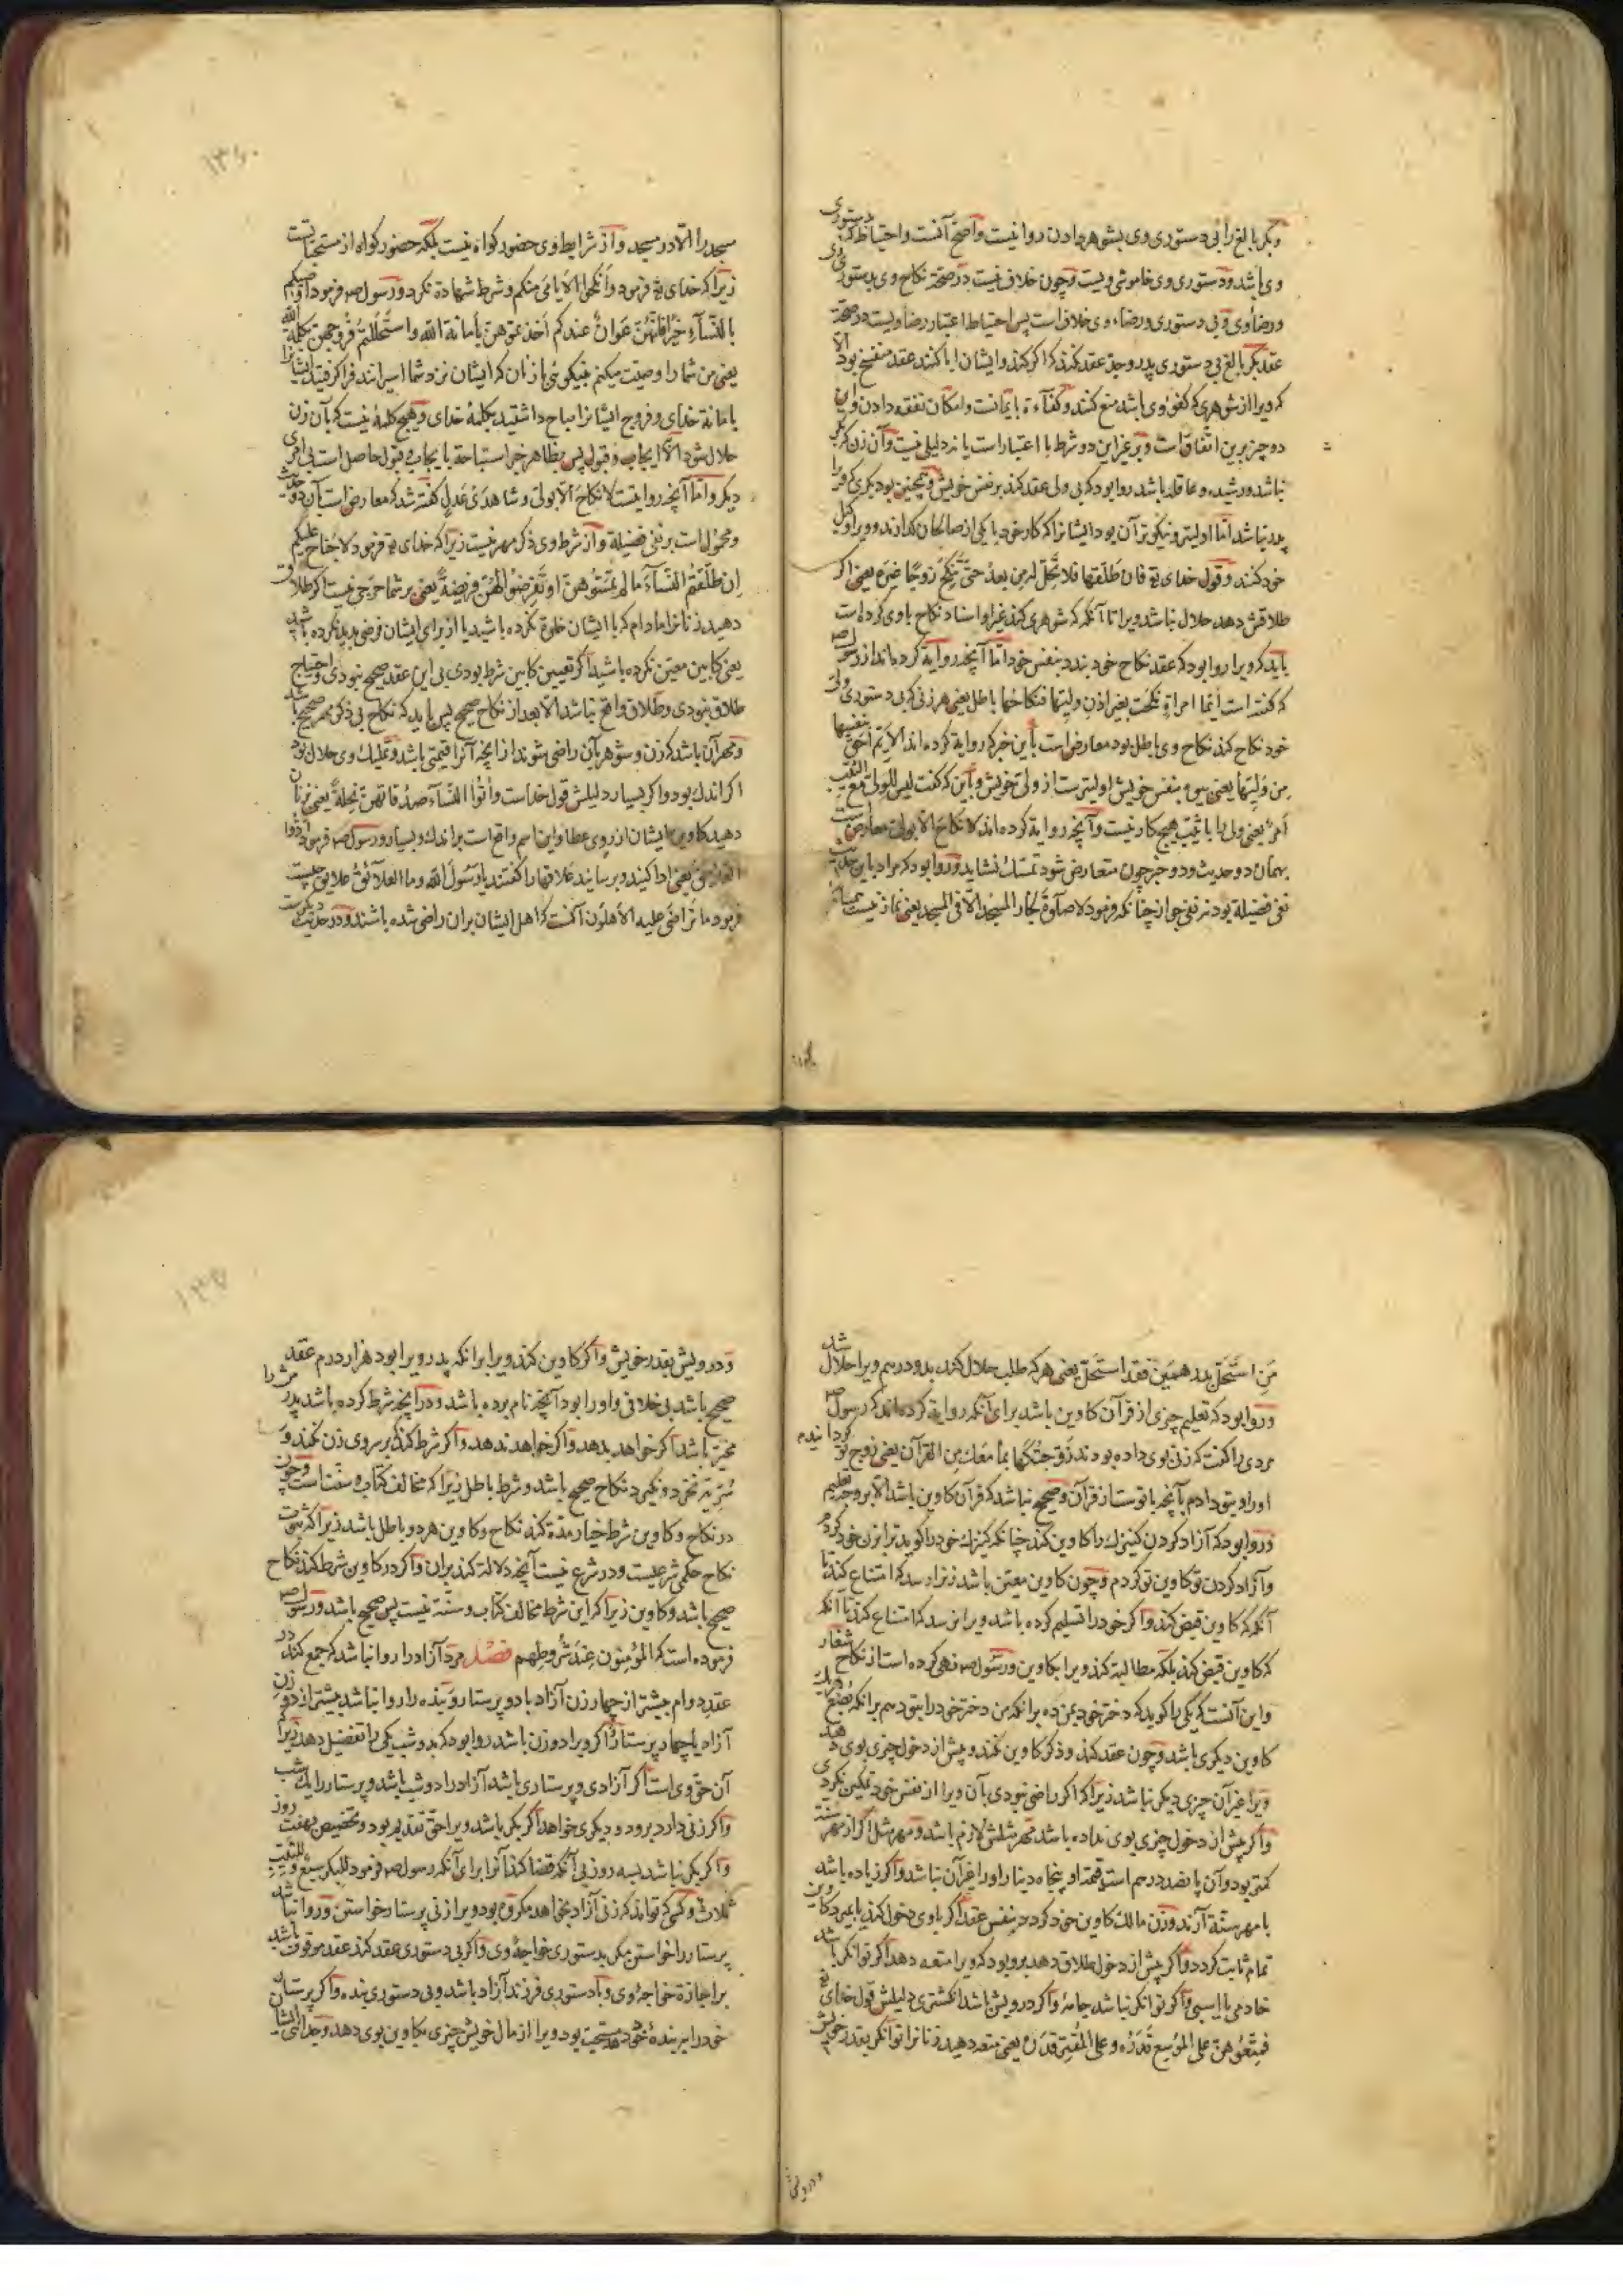 وبکر بالغ را بی دستوری وی بشوهر دادن روا نیست واصحّ آنست واحتیاط که بدستوری
وی باشد ودستوری وی خاموشی ویست وچون خلاف نیست در صحّة نکاح وی بدستوری وی
ورضاء وی وبی دستوری ورضاء وی خلاف است پس احتیاط اعتبار رضاء ویست در صحّة
عقد بکر بالغ بی دستوری پدر وجدّ عقد کنند که اگر کند وایشان ابا کنند عقد منفسخ بود الّا
که ویرا از شوهری که کفؤ وی باشد منع کنند وکفآءة بایمانست وامکان نفقه دادن واین
دو چیز برین اتفاق است وبر غیر این دو شرط با اعتبار است یا نه دلیلی نیست وآن زن که بکر
نباشد ورشیده وعاقله باشد روا بود که بی ولی عقد کند بر نفس خویش وهمچنین بود بکری که ویرا
پدر نباشد امّا اولیتر ونیکوتر آن بود ایشانرا که کار خود با یکی از صالحان گذارند وویرا وکیل
خود کنند وقول خدای تع فان طلّقها فلا تحلّ له من بعد حتّی تنکح زوجًا غیره یعنی اگر
طلاقش دهد حلال نباشد ویرا تا آنگه که شوهری کند غیر او اسناد نکاح باوی کرده است
باید که ویرا روا بود که عقد نکاح خود بندد بنفس خود امّا آنچه روایة کرده‌اند از رسول ص
که گفته است ایّما امراة نکحت بغیر اذن ولیّها فنکاحها باطل یعنی هر زنی که بی دستوری ولیّ
خود نکاح کند نکاح وی باطل بود معارض است باین خبر که روایة کرده اند الایّم احقّ بنفسها
من ولیّها یعنی بیوه بنفس خویش اولیترست از ولی خویش وباین که گفت لیس للولیّ مع الثیّب
امر یعنی ولی را با ثیّب هیچ کار نیست وآنچه روایة کرده اند لا نکاح الّا بولیّ معارض است
بهمان دو حدیث ودو خبر چون متعارض شود تمسّک نشاید وروا بود که مراد باین حدیث
نفی فضیلة بود نه نفی جواز چنانکه فرمود لا صلوة لجار المسجد الّا فی المسجد یعنی نماز نیست همسایهٔ
مسجد را الّا در مسجد واز شرایط وی حضور گواه نیست بلکه حضور گواه از مستحبّاتست
زیرا که خدای تع فرمود وانکحوا الایامی منکم وشرط شهادة نکرد ورسول ص فرمود اوصیکم
بالنّسآء خیرًا فانّهنّ عوان عندکم اخذتموهنّ بامانة اللّه واستحللتم فروجهنّ بکلمة اللّه
یعنی من شما را وصیّت میکنم بنیکویی با زنان که ایشان نزد شما اسیرانند فرا گرفتید ایشانرا
بامانة خدای وفروج ایشانرا مباح داشتید بکلمهٔ خدای وهیچ کلمهٔ نیست که بآن زن
حلال شود الّا ایجاب وقبول پس بظاهر خبر استباحة بایجاب وقبول حاصل است بی امری
دیگر وامّا آنچه روایتست لا نکاح الّا بولیّ وشاهدی عدل گفته شد که معارض است بآن دو حدیث
ومحمول است بر نفی فضیلة واز شرط وی ذکر مهر نیست زیرا که خدای تع فرمود لا جناح علیکم
ان طلّقتم النّسآء ما لم تمسّوهنّ او تفرضوا لهنّ فریضة یعنی بر شما حرجی نیست اگر طلاق
دهید زنانرا مادام که با ایشان خلوة نکرده باشید یا از برای ایشان فرضی پدید نکرده باشید
یعنی کابین معیّن نکرده باشید اگر تعیین کابین شرط بودی بی این عقد صحیح نبودی واحتیاج
طلاق نبودی وطلاق واقع نباشد الّا بعد از نکاح صحیح پس باید که نکاح بی ذکر مهر صحیح باشد
ومهر آن باشد که زن وشوهر بآن راضی شوند از آنچه آنرا قیمتی باشد وتملیک وی حلال بود
اگر اندک بود واگر بسیار دلیلش قول خداست واتوا النّسآء صدقاتهنّ نحلة یعنی زنانرا
دهید کاوین ایشان از روی عطا واین اسم واقع است بر اندک وبسیار ورسول ص فرمود ادّوا
العلائق یعنی ادا کنید وبرسانید علاقها را گفتند یا رسول اللّه وما العلائق علایق چیست
فرمود ما تراضی علیه الاهلون آنست که اهل ایشان بران راضی شده باشند ودر حدیث دیگرست
من استحلّ بدرهمین فقد استحلّ یعنی هر که طلب حلال کند بدو درهم ویرا حلال شد
وروا بود که تعلیم چیزی از قرآن کاوین باشد برای آنکه روایة کرده‌اند که رسول ص
مردی را گفت که زنی بوی داده بودند زوّجتکها بما معک من القرآن یعنی زوج تو گردانیدم
او را وبتو دادم بآنچه با توست از قرآن وصحیح نباشد که قرآن کاوین باشد الّا بر وجه تعلیم
وروا بود که آزاد کردن کنیزک را کاوین کند چنانکه کنیزک خود را گوید ترا بزن خود کردم
وآزاد کردن تو کاوین تو کردم وچون کاوین معیّن باشد زنرا رسد که امتناع کند تا
آنگه که کاوین قبض کند واگر خود را تسلیم کرده باشد ویرا نرسد که امتناع کند تا آنگه
که کاوین قبض کند بلکه مطالبه کند ویرا بکاوین ورسول ص نهی کرده است از نکاح شغار
واین آنست که یکی را گوید که دختر خود بمن ده برانکه من دختر خود را بتو دهم برانکه بضع هر یک
کاوین دیگری باشد وچون عقد کند وذکر کاوین نکند وپیش از دخول چیزی بوی دهد
ویرا غیر آن چیزی دیگر نباشد زیرا که اگر راضی نبودی بآن ویرا از نفس خود تمکین نکردی
واگر پیش از دخول چیزی بوی نداده باشد مهر مثلش لازم باشد ومهر مثل اگر از مهر سنّة
کمتر بود وآن پانصد درهم است قیمة او پنجاه دینار او را غیر آن نباشد واگر زیاده باشد
با مهر سنّة آرند وزن مالک کاوین خود گردد بنفس عقد اگر باوی دخول کند یا بمیرد کاوین
تمام ثابت گردد واگر پیش از دخول طلاق دهد برو بود که ویرا متعه دهد اگر توانگر باشد
خادمی یا اسبی واگر توانگر نباشد جامهٔ واگر درویش باشد انگشتری دلیلش قول خدای تع
فمتّعوهنّ علی الموسع قدره وعلی المقتر قدره یعنی متعه دهید زنانرا توانگر بقدر خویش
ودرویش
ودرویش بقدر خویش واگر کاوین کند ویرا برانکه پدر ویرا بود هزار درم عقد
صحیح باشد بی خلافی واو را بود آنچه نام برده باشد ودر آنچه شرط کرده باشد پدرش را
مخیّر باشد اگر خواهد بدهد واگر خواهد ندهد واگر شرط کند که بر سر وی زن نکند و
سرّیّه نخرد ونگیرد نکاح صحیح باشد وشرط باطل زیرا که مخالف کتاب وسنّت است وچون
در نکاح وکاوین شرط خیار مدّة کند نکاح وکاوین هر دو باطل باشد زیرا که ثبوت
نکاح حکمی شرعیست ودر شرع نیست آنچه دلالة کند بران واگر در کاوین شرط کند نکاح
صحیح باشد وکاوین زیرا که این شرط مخالف کتاب وسنّة نیست پس صحیح باشد ورسول ص
فرموده است که المؤمنون عند شروطهم فصل مرد آزاد را روا نباشد که جمع کند در
عقد دوام بیشتر از چهار زن آزاد یا دو پرستار وبنده را روا نباشد بیشتر از دو زن
آزاد یا چهار پرستار واگر ویرا دو زن باشد روا بود که بدو شب یکی را تفضیل دهد زیرا که
آن حقّ وی است اگر آزادی وپرستاری باشد آزاد را دو شب باشد وپرستار را یک شب
واگر زنی دارد برو ودیگری خواهد اگر بکر باشد ویرا حقّ تقدیم بود وتخصیص بهفت روز
واگر بکر نباشد بسه روز بی آنکه قضا کند آنرا برای آنکه رسول ص فرمود للبکر سبع وللثیّب
ثلاث وکسی که تواند که زنی آزاد بخواهد مکروه بود ویرا زنی پرستار خواستن وروا نباشد
پرستار را خواستن مگر بدستوری خواجهٔ وی واگر بی دستوری عقد کند عقد موقوف باشد
بر اجازة خواجهٔ وی وبا دستوری فرزند آزاد باشد وبی دستوری بنده واگر پرستار
خود را ببندهٔ خود دهد مستحبّ بود ویرا از مال خویش چیزی بکاوین بوی دهد وجدائی ایشان